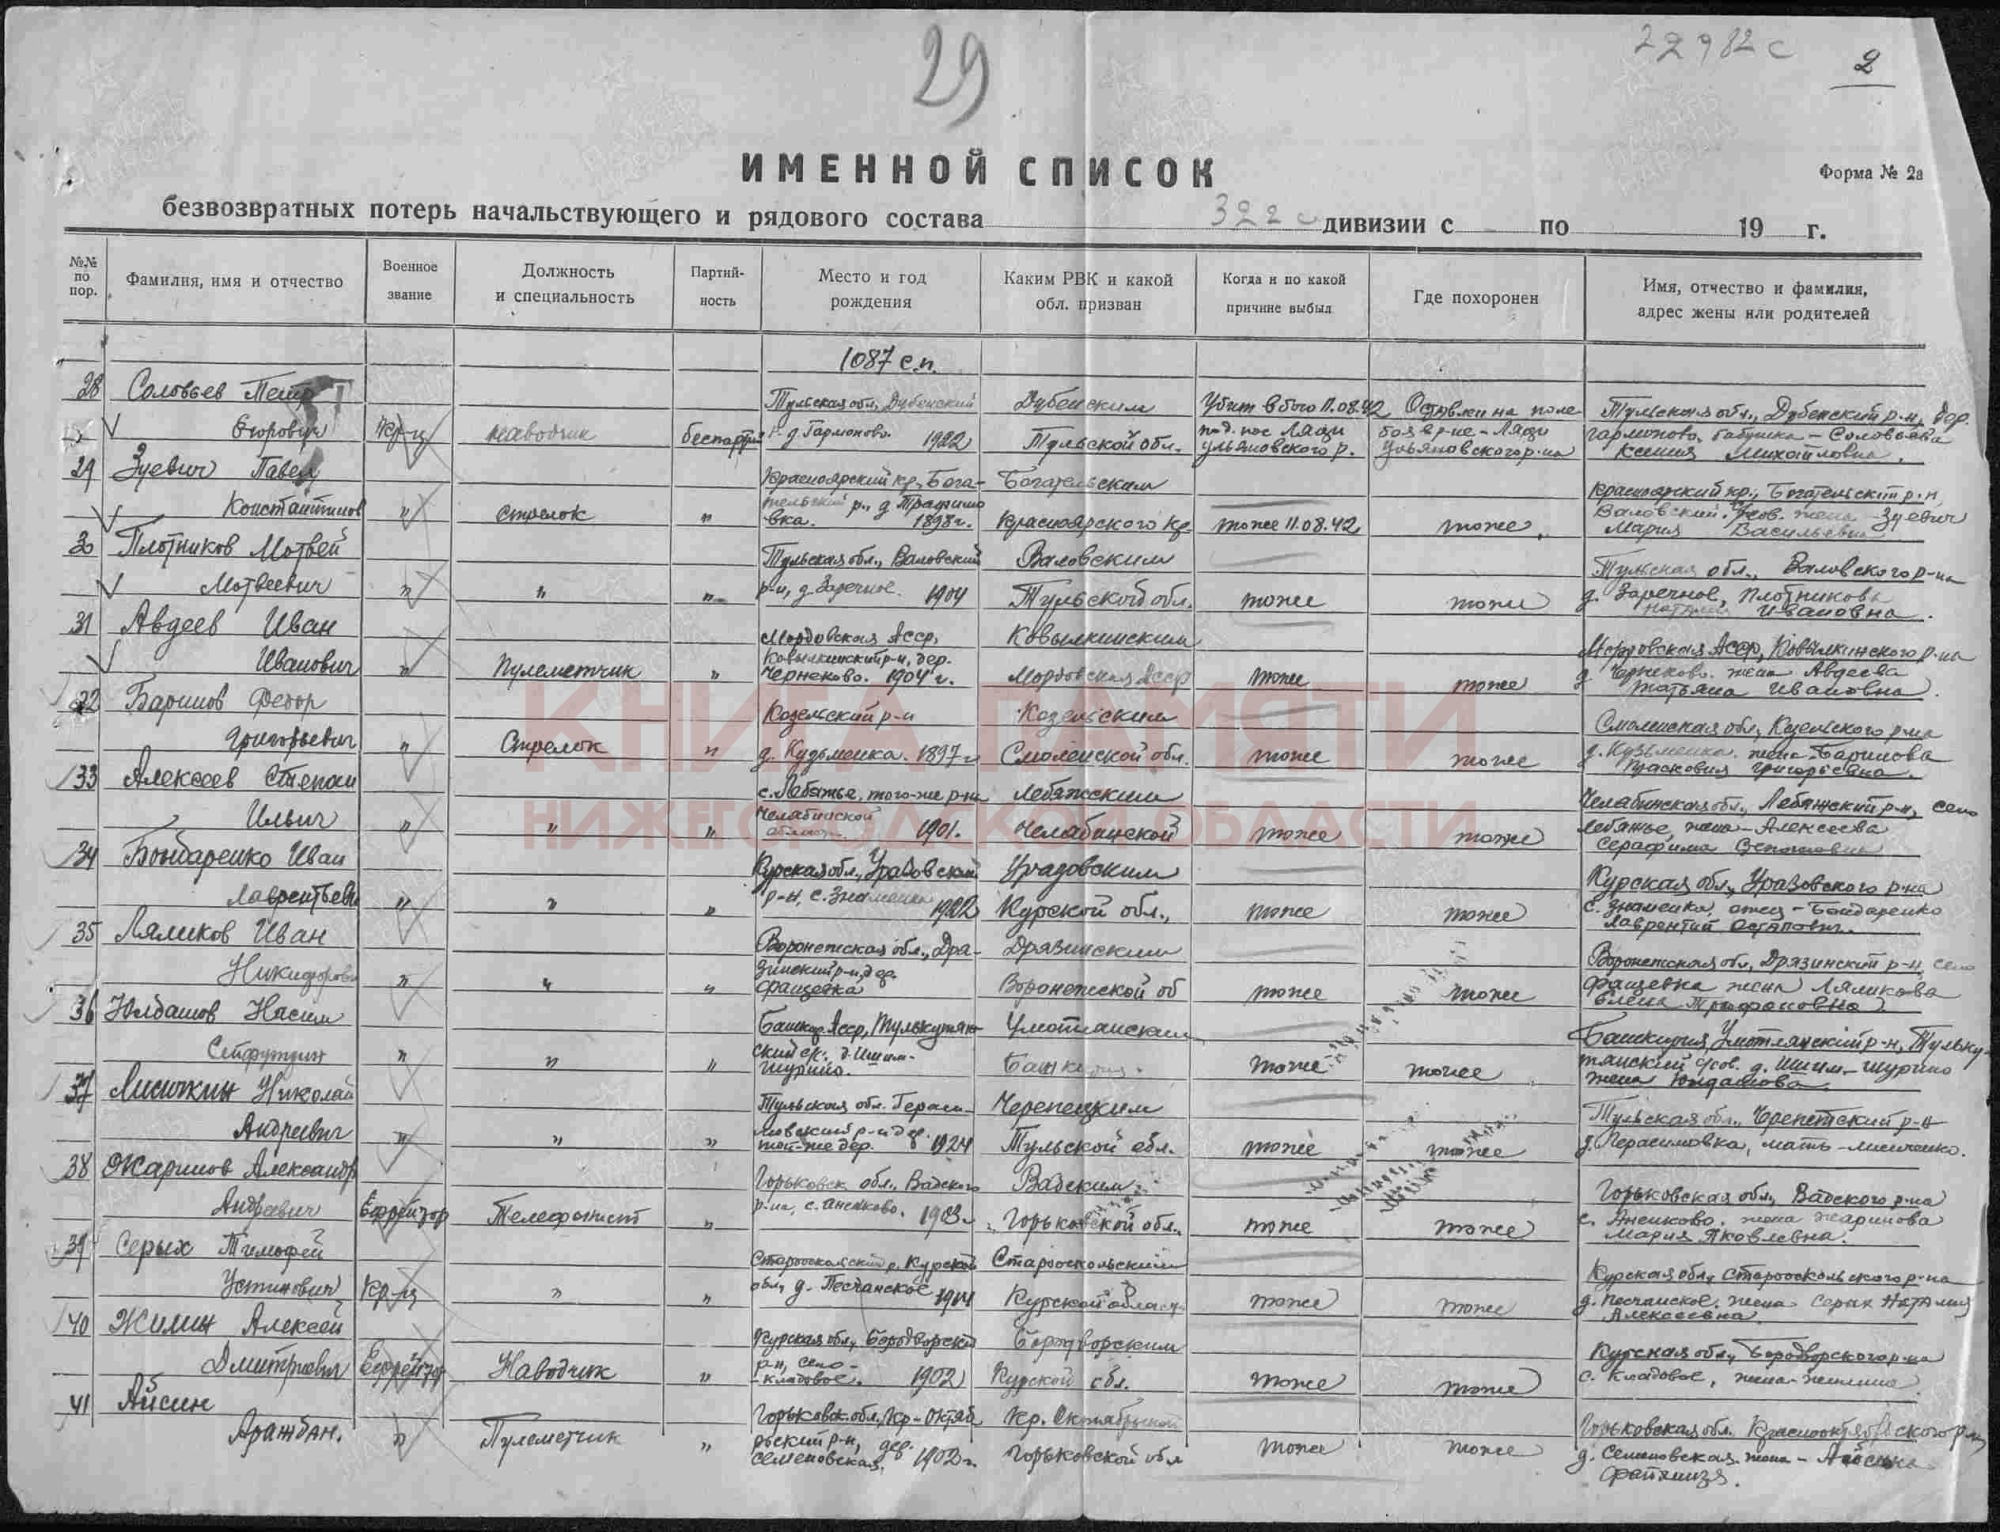 29
22982с
2
ИМЕННОЙ СПИСОК
Форма № 2а
безвозвратных потерь начальствующего и рядового состава 322 с дивизии с по 19 г.
№№ по пор.
Фамилия, имя и отчество
Военное звание
Должность и специальность
Партийность
Место и год рождения
Каким РВК и какой обл. призван
Когда и по какой причине выбыл
Где похоронен
Имя, отчество и фамилия, адрес жены или родителей
1087 с.п.
28 Соловьев Петр Тульская обл., Дубенский Дубенским Убит в бою 11.08.42 Оставлен на поле Тульская обл., Дубенский р-н, дер.
Егорович кр-ц наводчик беспартий р. д. Гармоново. 1922 Тульской обл. под. пос Ляди ульяновского р. боя в р-не - Ляди Ульяновского р-на гармоново, бабушка - Соловьева
Ксения Михайловна.
29 Зуевич Павел Красноярский кр., Бога- Богательским Красноярский кр., Богательский р-н,
Константинов " стрелок " тельский р., д. 1898 г. Красноярского кр. тоже 11.08.42 тоже жена Зуевич
вка. Мария Васильевна
30 Плотников Мотвей Тульская обл., Воловский Воловским Тульская обл., Воловского р-на
Мотвеевич " " " р-н, д. Заречное. 1904 Тульской обл. тоже тоже д. Заречное, Плотникова
Ивановна.
31 Авдеев Иван Мордовская Асср, Ковылкинским Мордовская Асср, Ковылкинского р-на
Иванович " Пулеметчик " Ковылкинский р-н, дер. Мордовская Асср тоже тоже д. Чернеково. жена Авдеева
Чернеково. 1904 г. Татьяна Ивановна.
32 Баринов Федор Козельский р-н Козельским Смоленская обл, Козельского р-на
Григорьевич " Стрелок " д. Кузьменка. 1897 г Смоленской обл. тоже тоже д. Кузьменка. жена - Баринова
Прасковия Григорьевна.
33 Алексеев Степан с. Лебяжье, того-же р-на Лебяжским Челябинская обл., Лебяжский р-н, село
Ильич " " " Челябинской 1901. Челябинской тоже тоже Лебяжье, жена - Алексеева
Серафима
34 Бондаренко Иван Курская обл., Уразовский Уразовским Курская обл., Уразовского р-на
Лаврентьеви " " " р-н, с. Знаменка 1922 Курской обл., тоже тоже с. Знаменка, отец - Бондаренко
Лаврентий Остапович.
35 Ляликов Иван Воронежская обл., Дря- Дрязинским Воронежская обл, Дрязинский р-н, село
Никифорови " " " зинский р-н, дер. Воронежской об тоже тоже Фащевка жена Ляликова
Фащевка Елена Трифановна
36 Юлдашов Насим Башкир Асср,
" " " тоже тоже
жена Юлдашова
37 Лисичкин Николай Тульская обл. Гераси- Черепецким Тульская обл., Черепетский р-н
Андреевич " " " мовский р-н дер. Тульской обл. тоже тоже д. Герасимовка, мать -
той-же дер. 1924
38 Жаринов Александр Горьковск. обл., Вадского Вадским Горьковская обл., Вадского р-на
Андреевич Ефрейтор Телефонист " р-на, с. Аненково. 1903 г. Горьковской обл. тоже тоже с. Аненково. жена Жаринова
Мария Яковлевна.
39 Серых Тимофей Старооскольский р. Курской Старооскольский Курская обл, Старооскольского р-на
Устинович кр-ц " " обл, д. Песчанское 1904 Курской област. тоже тоже д. Песчанское. жена Серых Наталия
Алексеевна.
40 Жилин Алексей Курская обл, Бородворский Бородворским Курская обл, Бородворского р-на
Дмитриевич Ефрейтор Наводчик " р-н, село - Курской обл. тоже тоже с. Кладовое, жена - Жилина
- кладовое. 1902
41 Айсин Горьковск. обл, Кр-Октяб Кр. Октябрьской Горьковская обл. Краснооктябрьского р-на
Аражбан. " Пулеметчик " рьский р-н, дер. Горьковской обл тоже тоже д. Семеновская. жена - Айсина
Семеновская. 1902 г.
КНИГА ПАМЯТИ
НИЖЕГОРОДСКОЙ ОБЛАСТИ